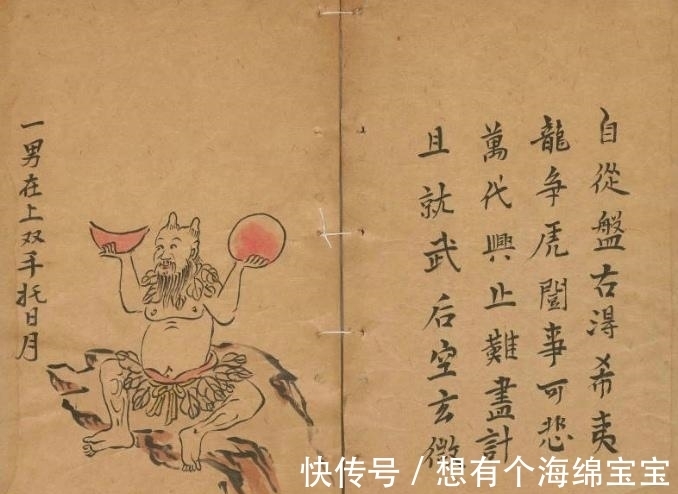 自從盤古淂希夷
龍爭虎鬪事可悲
萬代興止難盡計
且就武后空玄微
一男在上双手托日月
快传号 / 想有个海绵宝宝